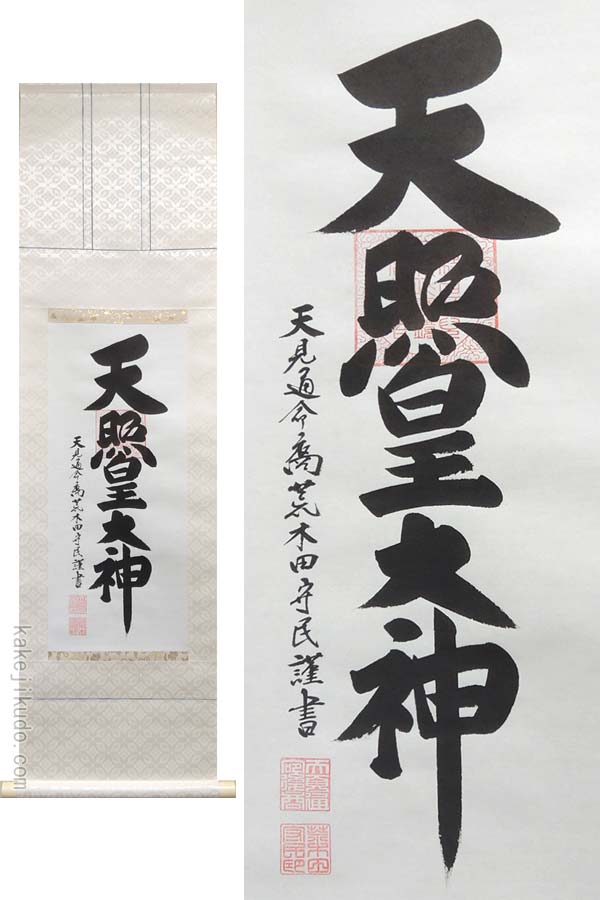 天照皇大神
天見通命裔荒木田守民謹書
天照皇大神
天見通命裔荒木田守民謹書
kakejikudo.com